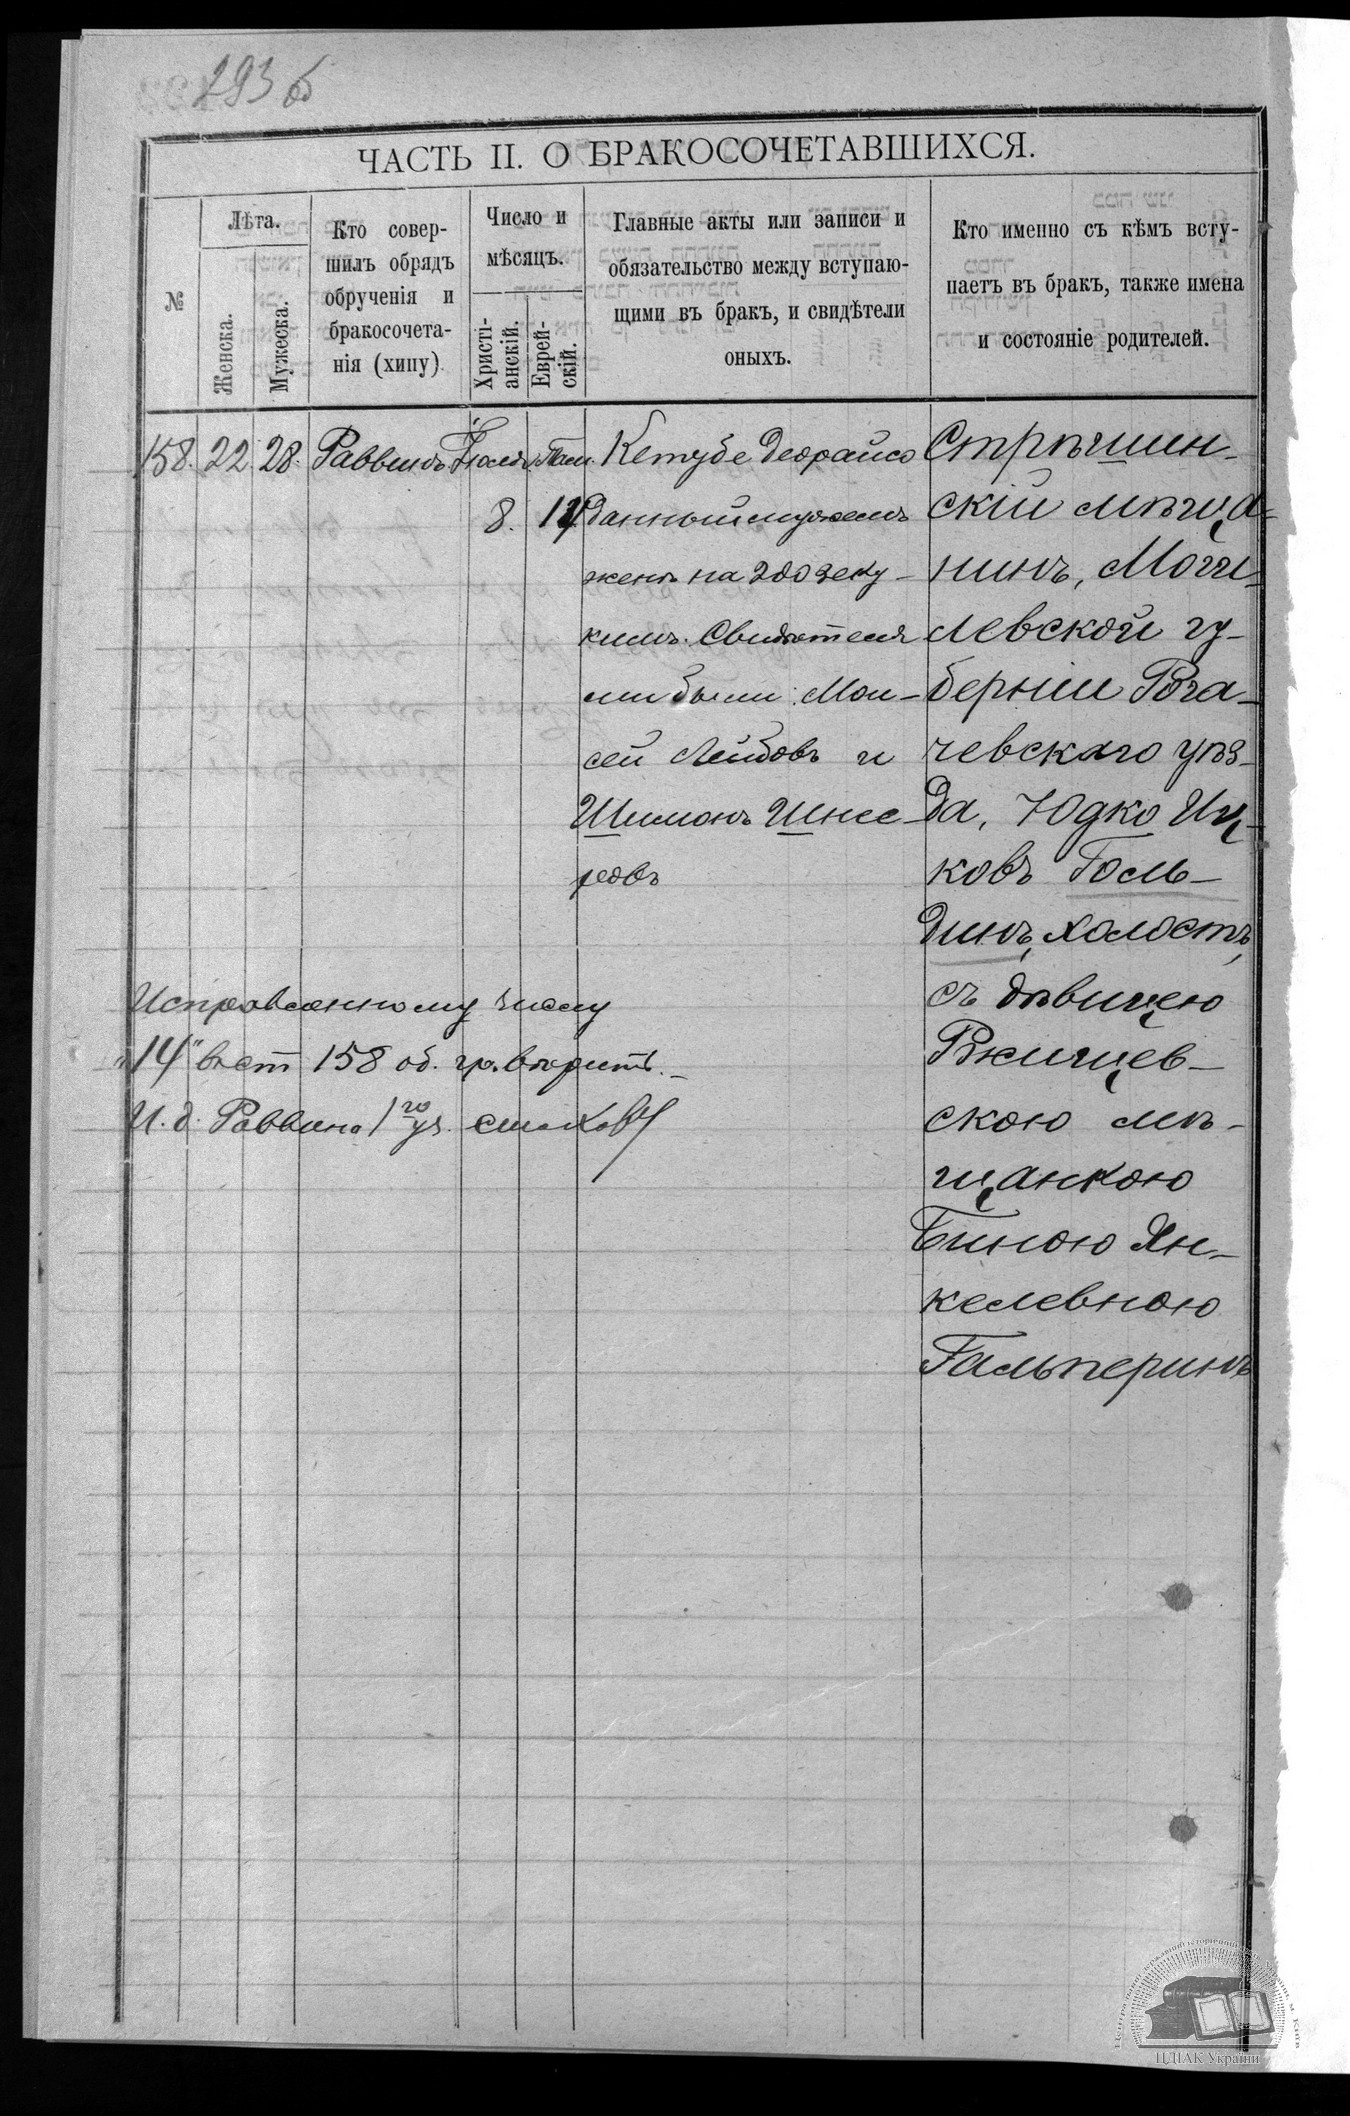 293 об
ЧАСТЬ II. О БРАКОСОЧЕТАВШИХСЯ.
№
Лѣта.
Женска.
Мужеска.
Кто совер-
шилъ обрядъ
обрученія и
бракосочета-
нія (хипу)
Число и
мѣсяцъ.
Христі-
анскій.
Еврей-
скій.
Главные акты или записи и
обязательство между вступаю-
щими въ бракъ, и свидѣтели
оныхъ.
Кто именно съ кѣмъ всту-
паетъ въ бракъ, также имена
и состояніе родителей.
158. 22 28. Раввинъ Іюля Там.
8. 14
Кетубе Деорайсо
данный мужемъ
женѣ на 200 зеку-
кимъ. Свидѣтеля
ми были: Мои-
сей Лейбовъ и
Шимонъ Шнее-
ровъ
Стрѣшин-
скій мѣща-
нинъ, Моги-
левской гу-
берніи Рога-
чевскаго уѣз-
да, Юдко Иц-
ковъ Голь-
динъ, холостъ,
съ дѣвицею
Ржищев-
скою мѣ-
щанкою
Биною Ян-
келевною
Гальперинъ
Исправленному числу
"14" въ ст 158 об. гр. вѣрить. -
И. д. Раввина 1го уч.
ЦДІАК України